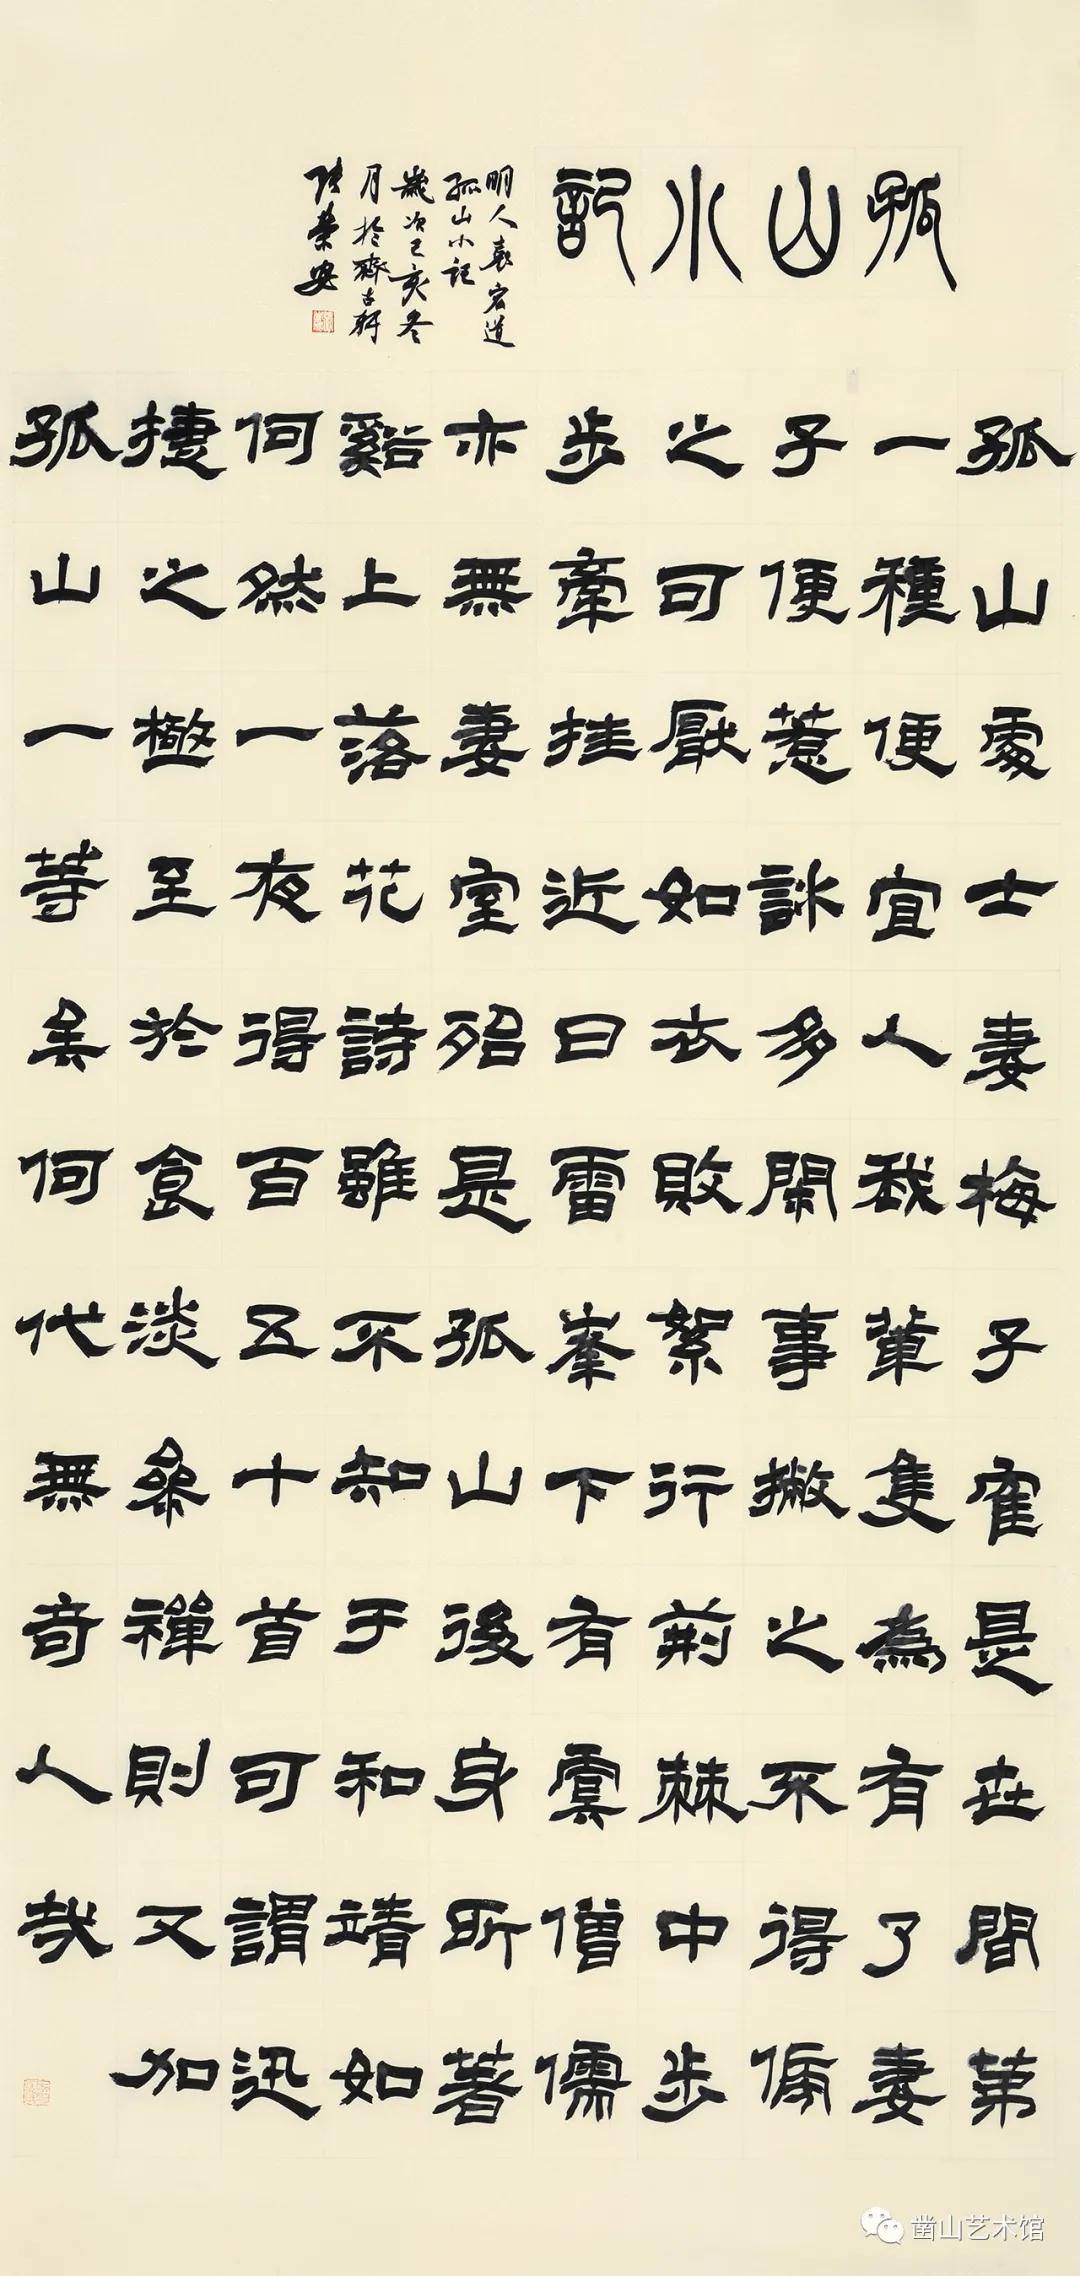 孤山小記
明人袁宏道
孤山小記
歲次己亥冬
月於齋古軒
榮安
孤山處士妻梅子寉是世間第
一種便宜人我輩隻為有了妻
子便惹許多閑事撇之不得傍
之可厭如衣敗絮行荊棘中步
步牽挂近日雷峯下有虞僧儒
亦無妻室殆是孤山後身所著
谿上落花詩雖不知于和靖如
何然一夜得百五十首可謂迅
捷之極至於食淡參禪則又加
孤山一等矣何代無奇人哉
凿山艺术馆